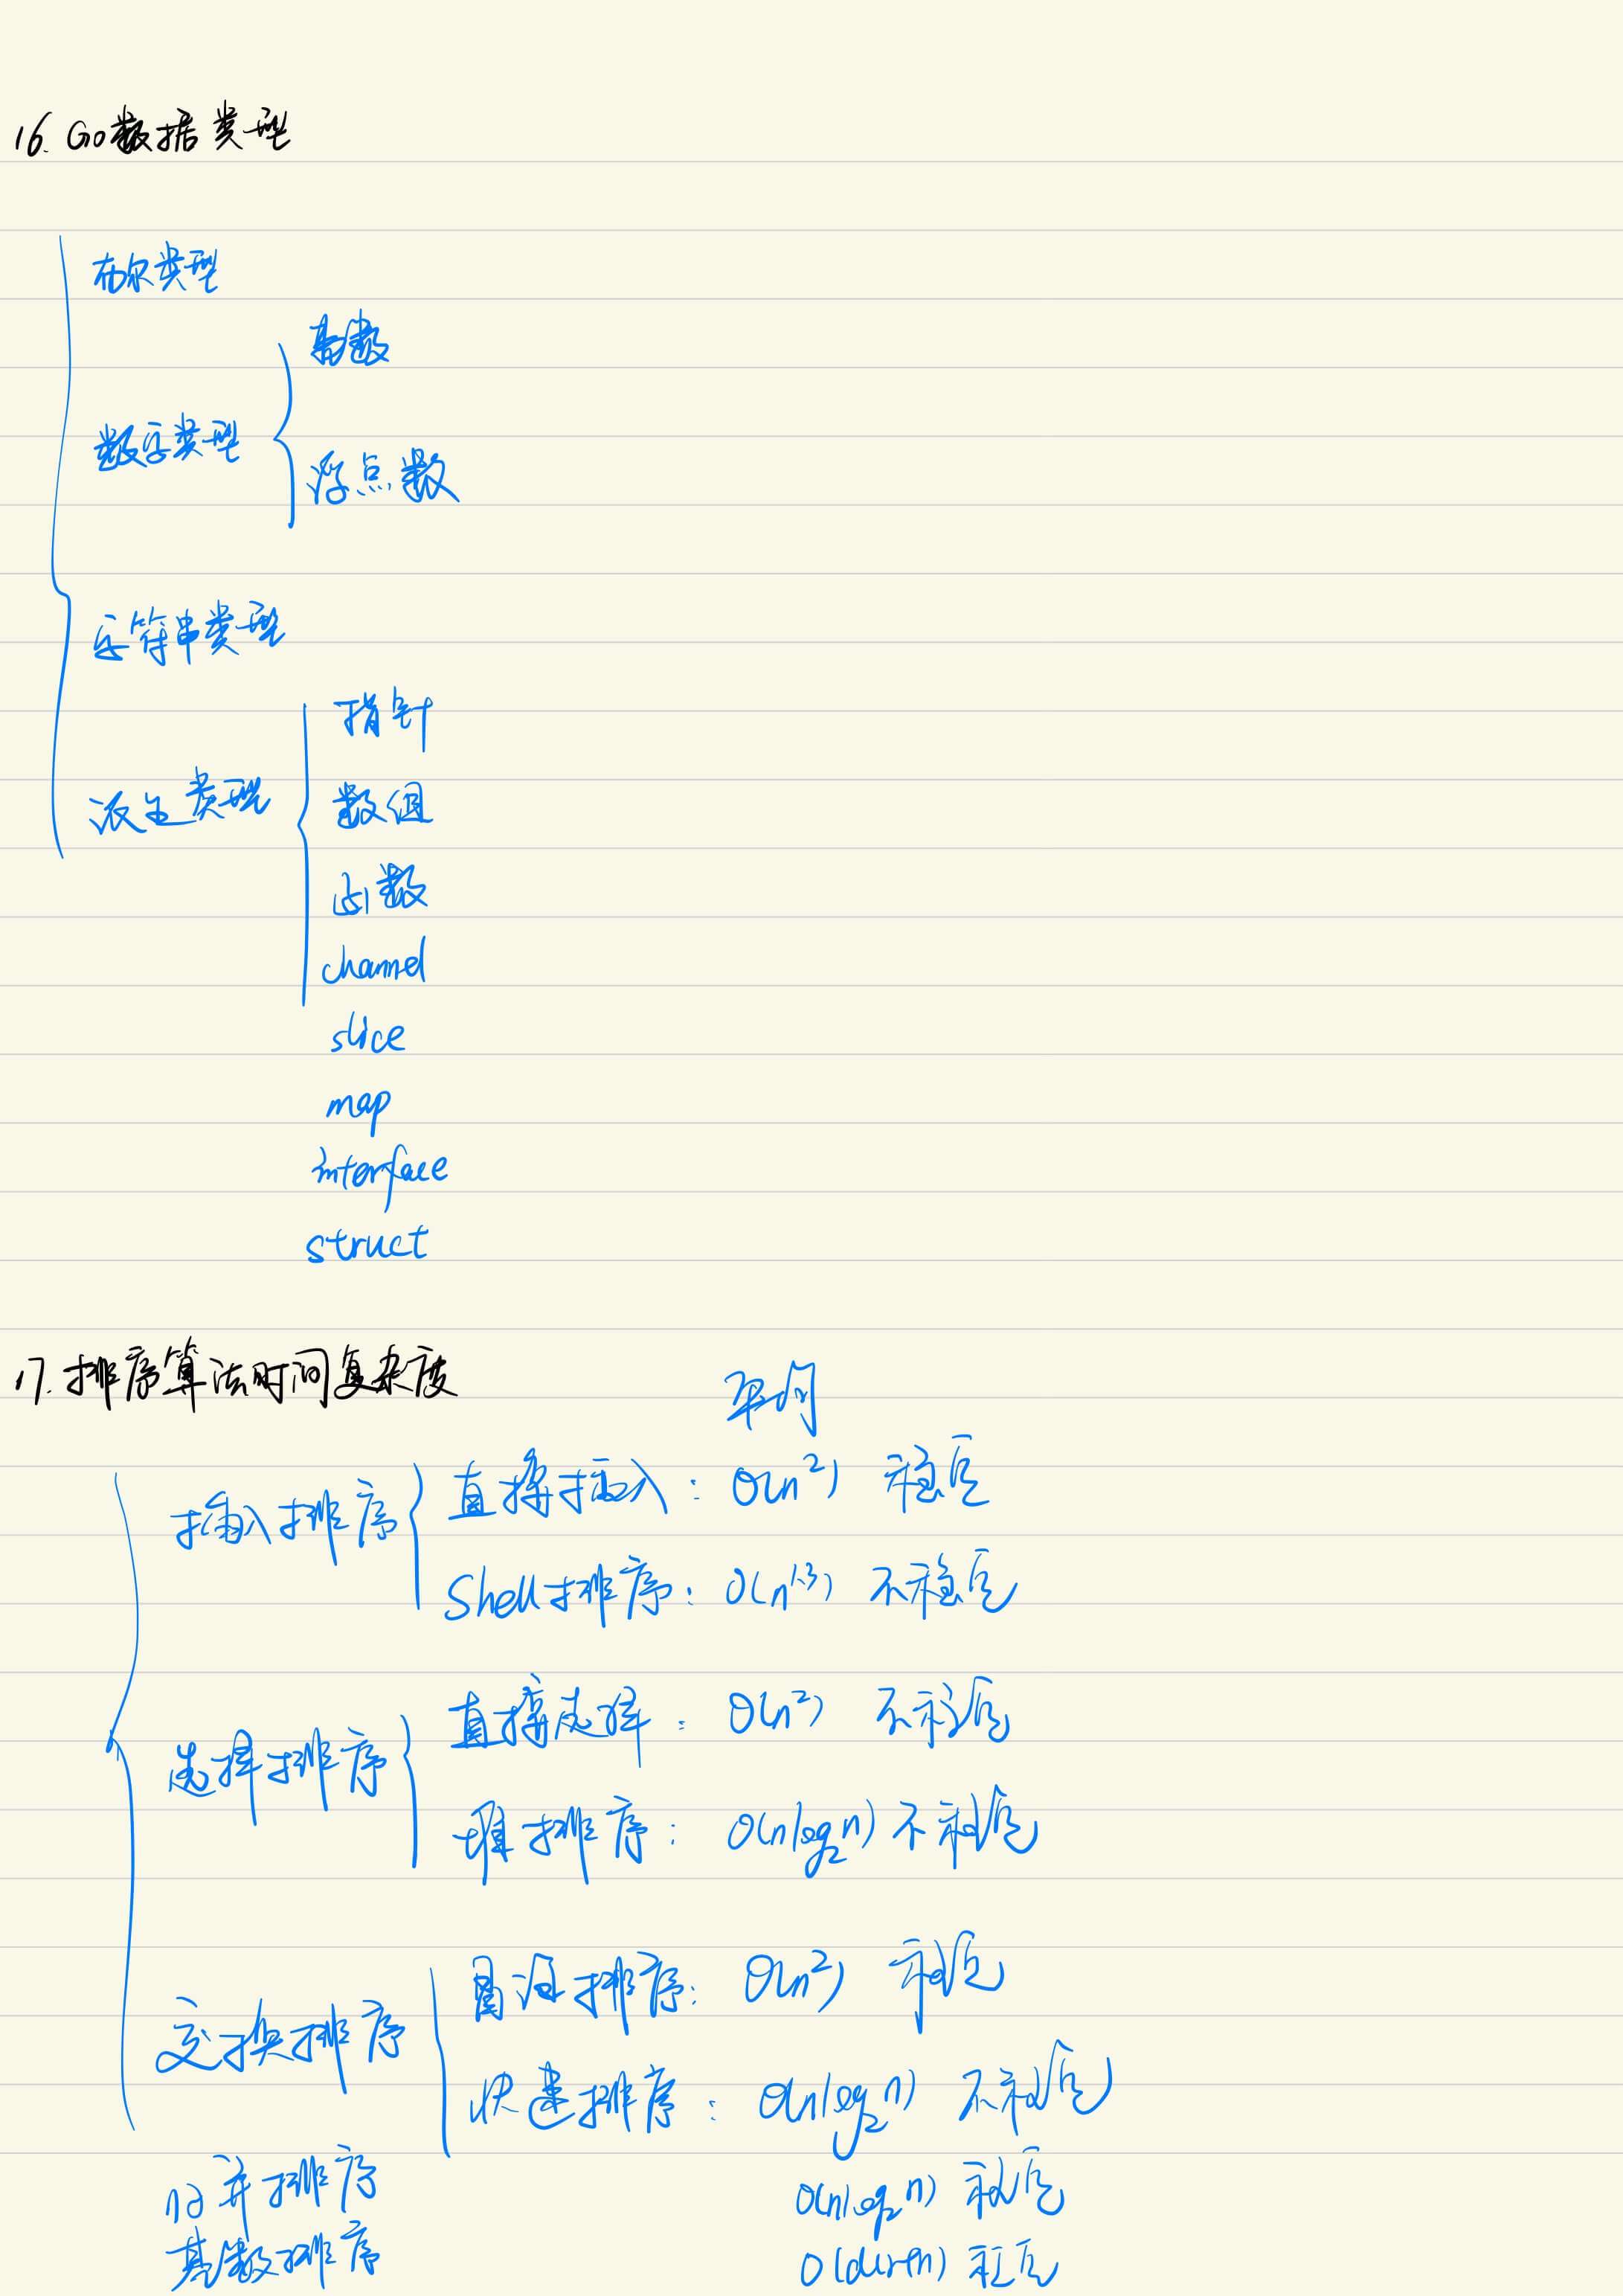 16. Go数据类型
布尔类型
整数
数字类型
浮点数
字符串类型
指针
派生类型
数组
函数
channel
slice
map
interface
struct
17. 排序算法时间复杂度
平均
插入排序
直接插入: O(n²) 稳定
Shell排序: O(n^1.3) 不稳定
选择排序
直接选择: O(n²) 不稳定
堆排序: O(nlog₂n) 不稳定
交换排序
冒泡排序: O(n²) 稳定
快速排序: O(nlog₂n) 不稳定
归并排序 O(nlog₂n) 稳定
基数排序 O(d(r+n)) 稳定